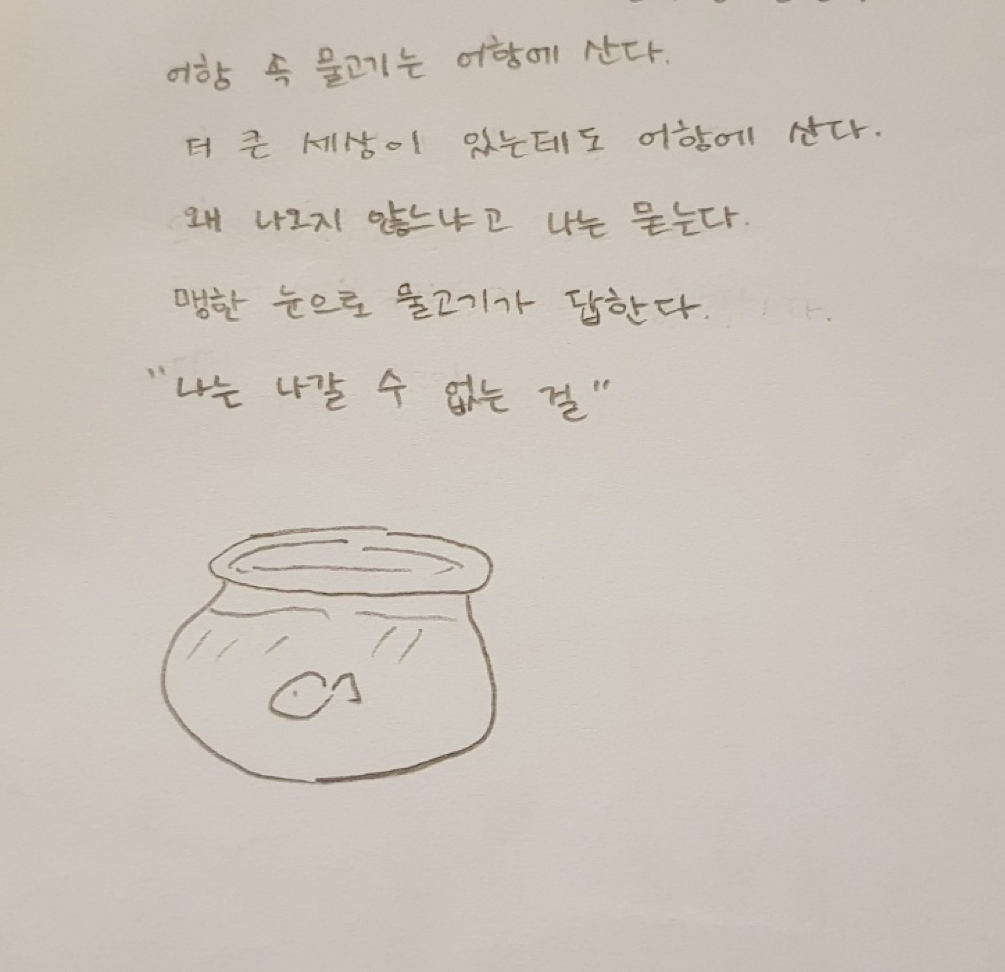 어항 속 물고기는 어항에 산다.
더 큰 세상이 있는데도 어항에 산다.
왜 나오지 않느냐고 나는 묻는다.
맹한 눈으로 물고기가 답한다.
"나는 나갈 수 없는 걸"